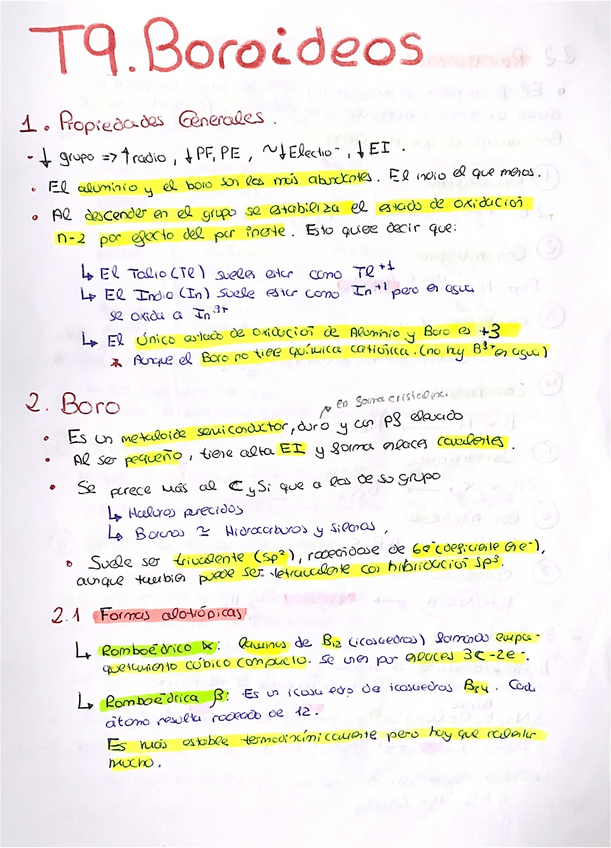 T9. Boroideos
1. Propiedades Generales.
- ↓ grupo => ↑ radio, ↓ PF, PE, ~↓ Electro., ↓ EI.
• El aluminio y el boro son los más abundantes. El indio el que menos.
• Al descender en el grupo se estabiliza el estado de oxidación
n-2 por efecto del par inerte. Esto quiere decir que:
↳ El Talio (Tl) suele estar como Tl+1
↳ El Indio (In) suele estar como In+1 pero en agua
se oxida a In3+
↳ El único estado de oxidación de Aluminio y Boro es +3
* Aunque el Boro no tiene química catiónica. (no hay B3+ en agua)
2. Boro
en forma cristalina
• Es un metaloide semiconductor, duro y con PF elevado
• Al ser pequeño, tiene alta EI y forma enlaces covalentes.
• Se parece más al C y Si que a los de su grupo
↳ Haluros parecidos
↳ Boranos ≃ Hidrocarburos y silanos.
• Suele ser trivalente (sp2), rodeándose de 6e- (deficiente en e-),
aunque también puede ser tetravalente con hibridación sp3.
2.1 Formas alotrópicas.
↳ Romboédrico α: láminas de B12 (icosaedros) formando empa-
quetamiento cúbico compacto. Se unen por enlaces 3C-2e-.
↳ Romboédrica β: Es un icosaedro de icosaedros B84. Cada
átomo resulta rodeado de 12.
Es más estable termodinámicamente pero hay que calentar
mucho.